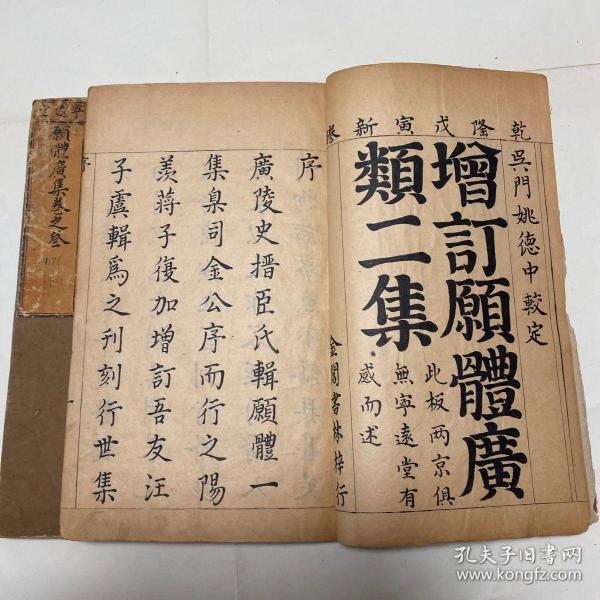 乾隆戊寅新鐫
吳門姚德中較定
增訂願體廣
類二集
此板两京俱
無寧遠堂有
感而述
金閶書林梓行
序
廣陵史搢臣氏輯願體一
集臬司金公序而行之陽
羡蒋子復加增訂吾友汪
子虞輯為之刊刻行世集
序
願體廣集卷之叁
孔夫子旧书网
www.kongfz.com